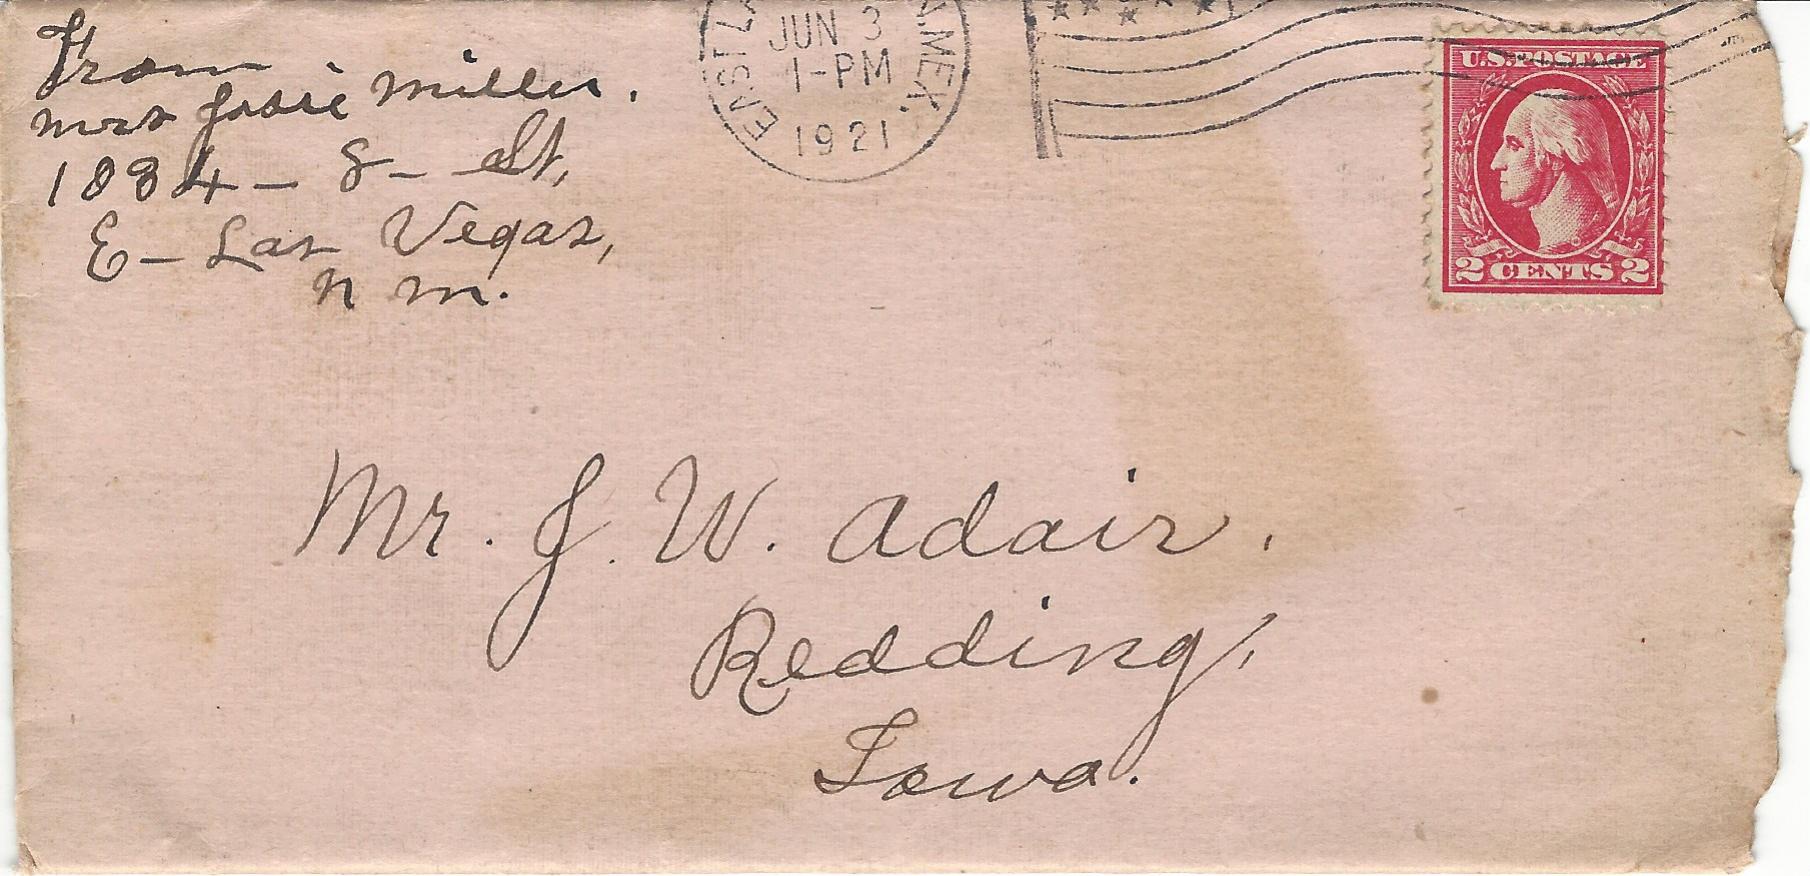 From
Mrs Josie Miller.
1034 - 8 - St,
E - Las Vegas,
N M.
EAST LA A. MEX.
JUN 3
1-PM
1921
U.S. POSTAGE
2 CENTS 2
Mr. J. W. Adair,
Redding,
Iowa.